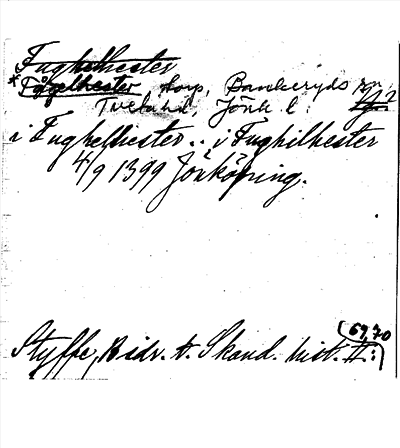 Fughelhester
* Fågelhester torp, Bankeryds sn,
Tveta hd, Jönk. l.
i Fughelhester .. i Fughilhester
4/9 1399 Jönköping.
Styffe, Bidr. t. Skand. hist. II:
(69, 70)